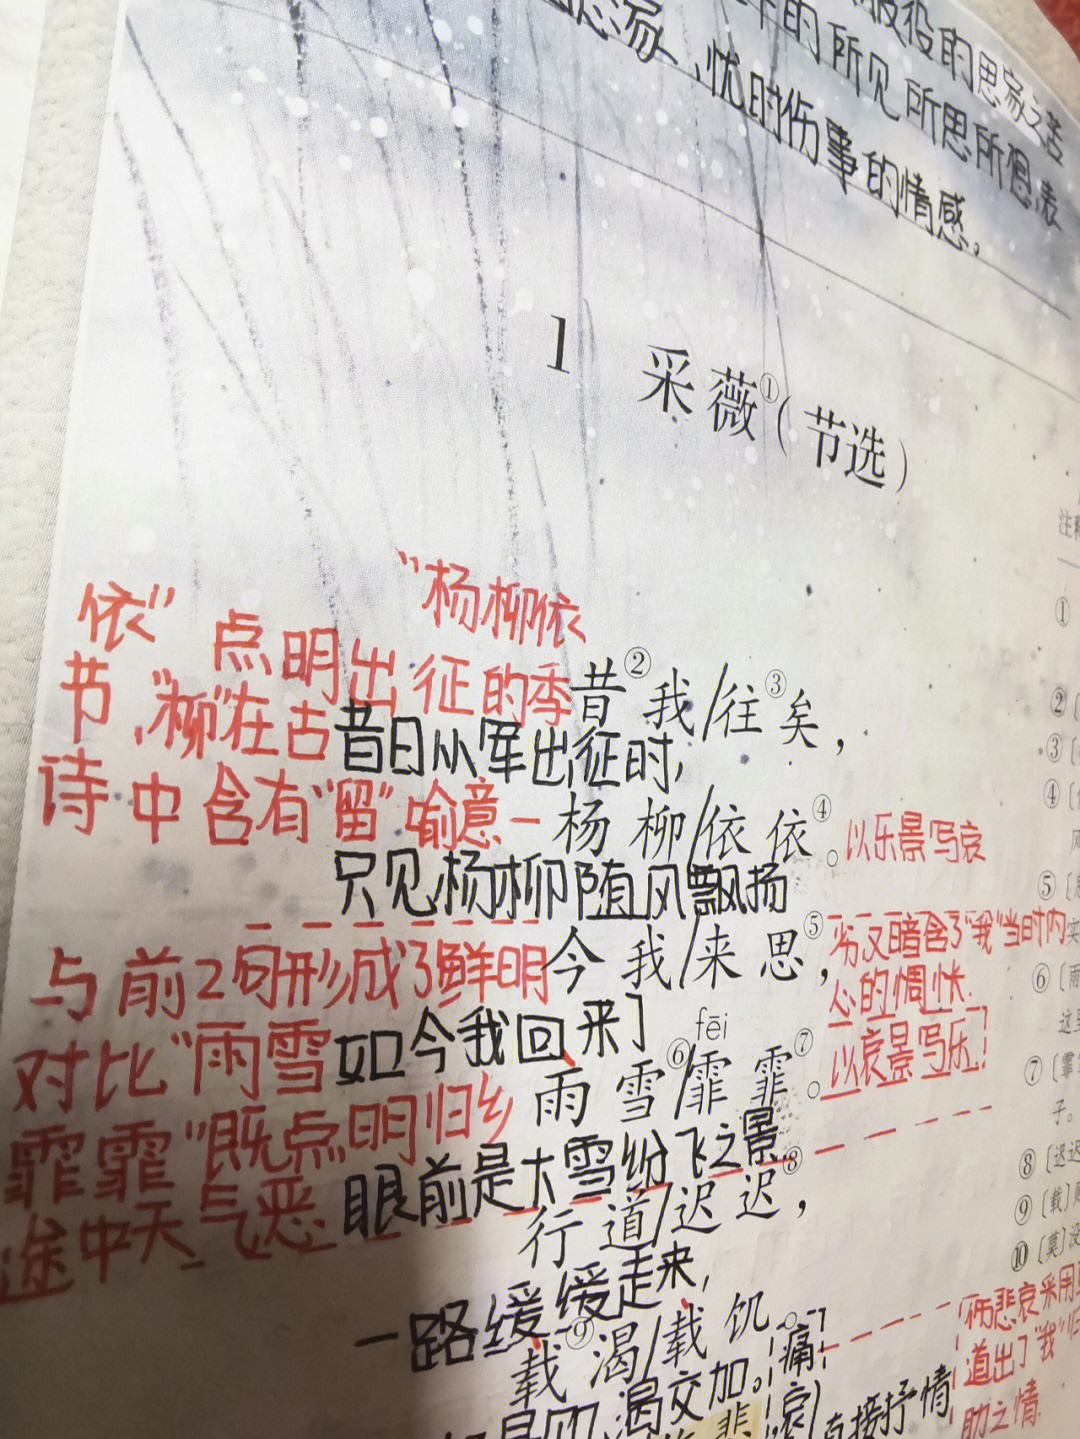 服役的思家之苦
的所见所思所想,表
忧时伤事的情感。
1 采薇①(节选)
"杨柳依
依"点明出征的季
节,"柳"在古
诗中含有"留"喻意
昔②我/往③矣，
昔日从军出征时,
杨柳/依依④。
以乐景写哀
只见杨柳随风飘扬
今我/来思⑤，
与前2句形成了鲜明
对比"雨雪
霏霏"既点明归乡
途中天气恶
如今我回来了
fēi
雨雪⑥/霏霏⑦。
暗含了"我"当时内
心的惆怅.
以哀景写乐!
眼前是大雪纷飞之景
行道/迟迟⑧，
一路缓缓走来,
载⑨渴/载饥。
渴交加。
痛
哀
悲
直接抒情
悲哀采用
道出了"我"归
助之情
注释
①
②
③
④
⑤
⑥〔雨
⑦〔霏
子。
⑧〔迟迟
⑨〔载〕
⑩〔莫〕没